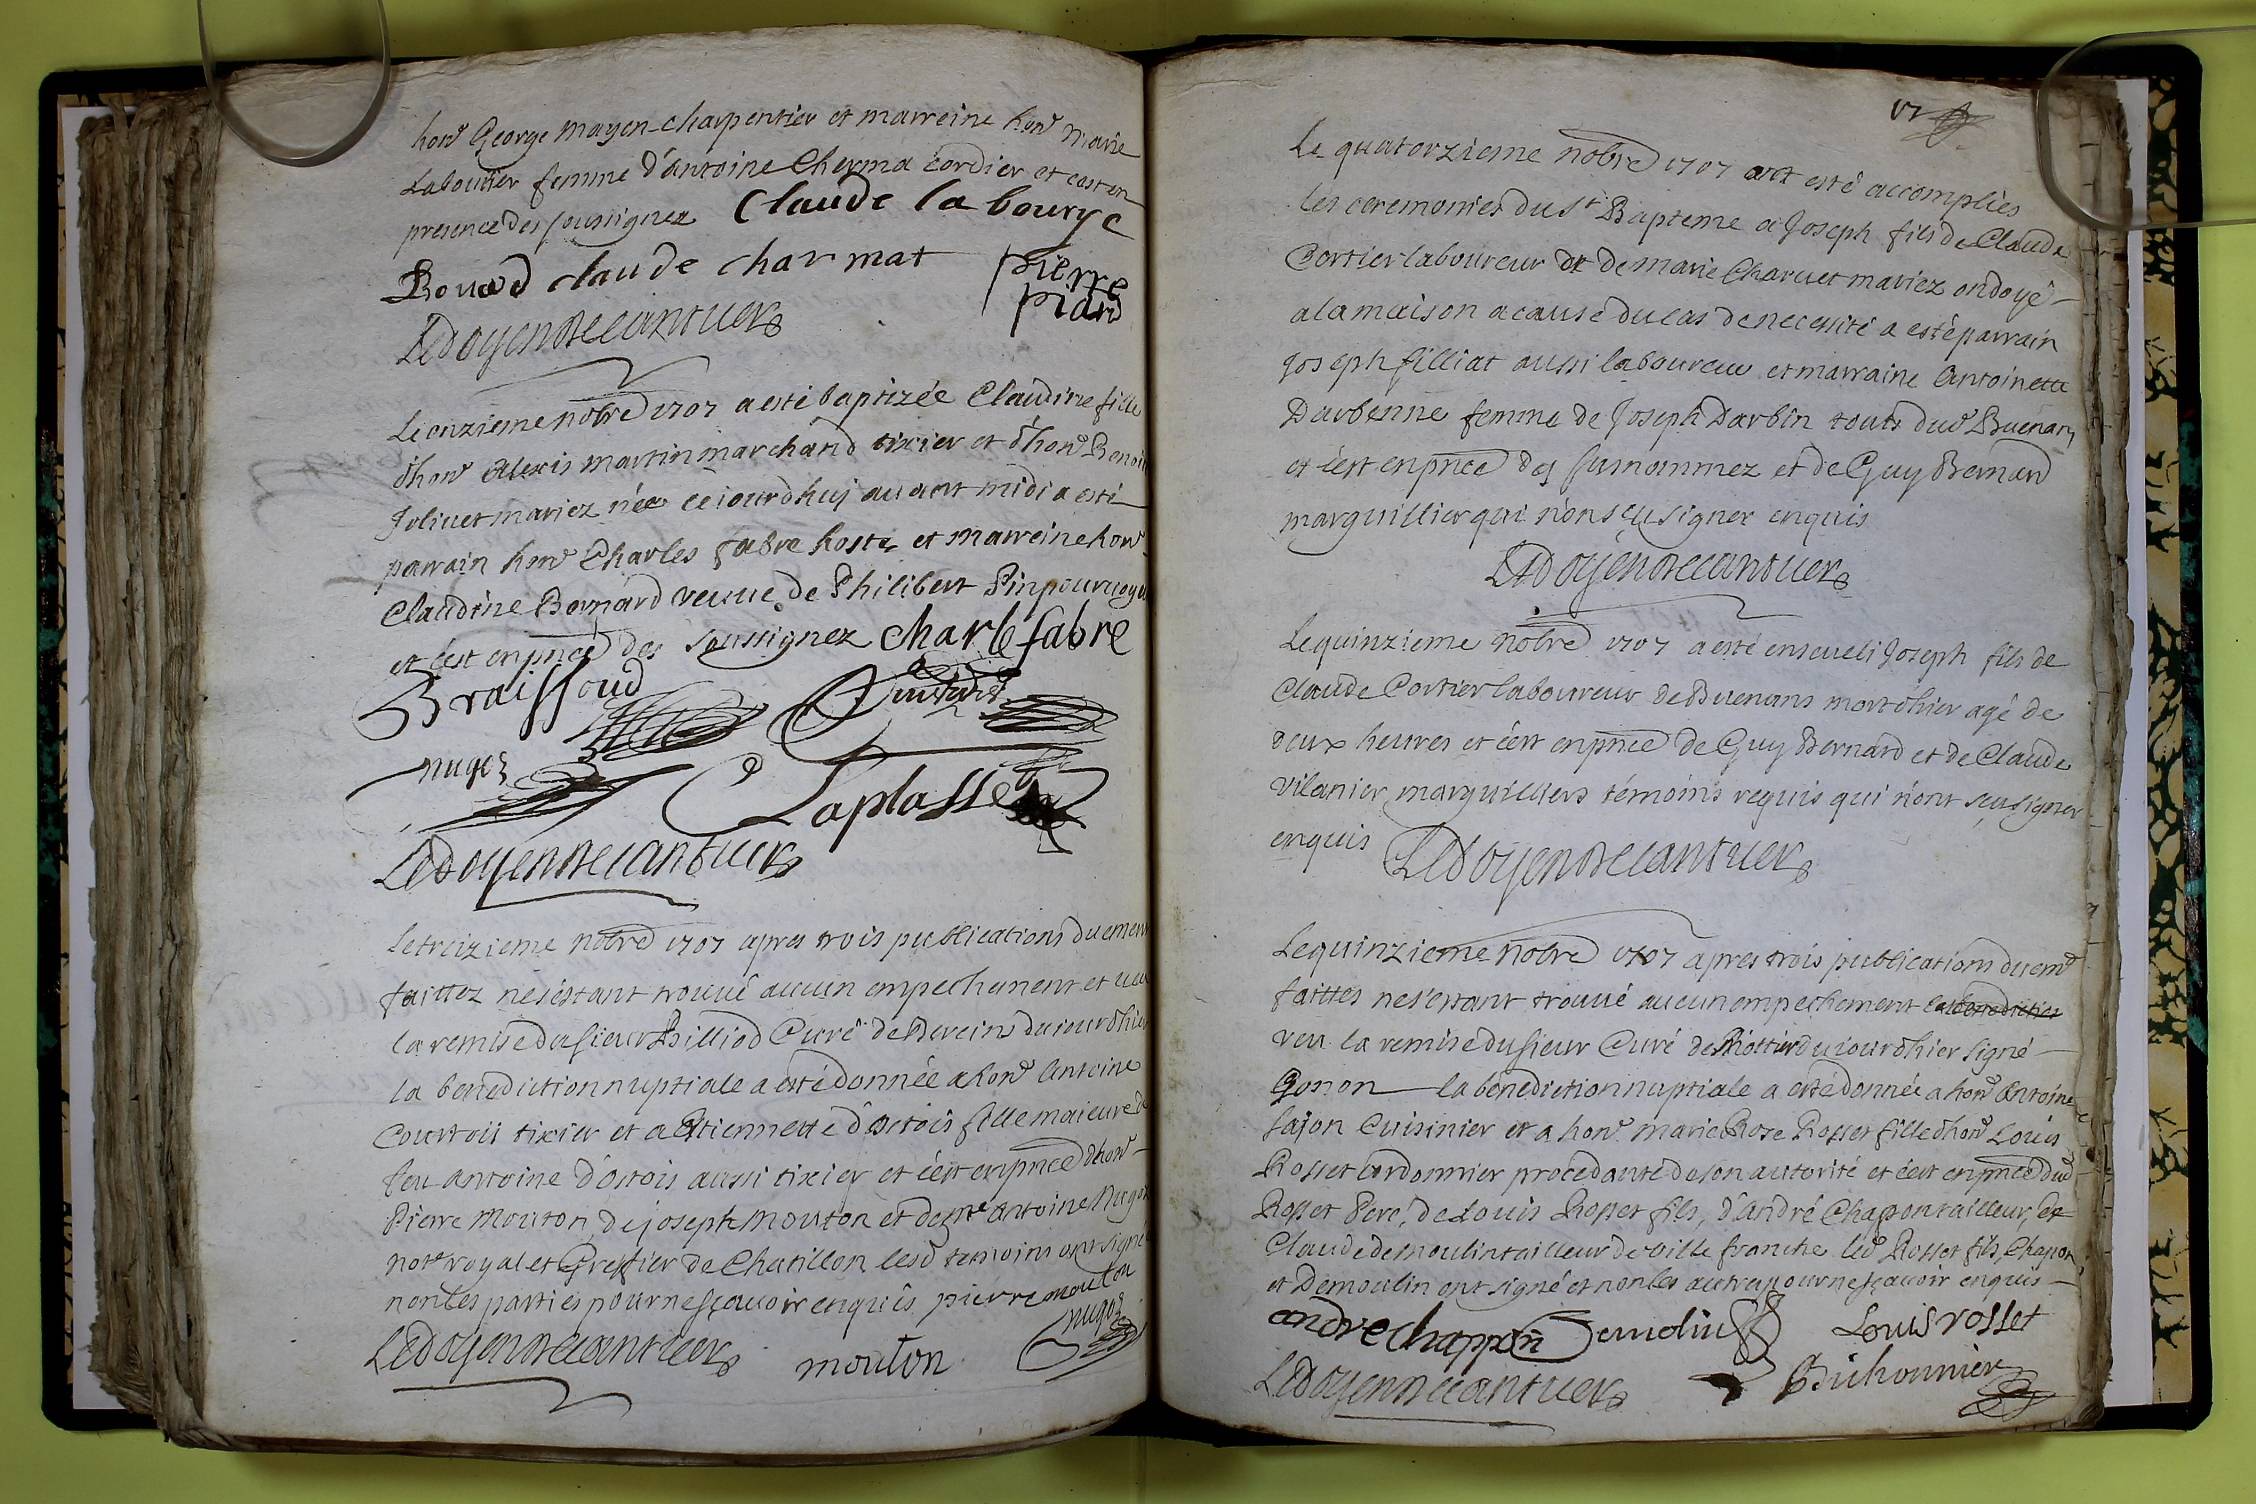 hon^d George mayen charpentier et marreine hon^d marie
Labourier femme d'antoine Charma cordier et cest en
presence des soussignez Claude la bourye
Bouad claude charmat pierre
piard
Ledoyen Decantuers
Le onzieme nobre 1707 a esté baptizée Claudine fille
d'hon^d Alexis martin marchand tixier et d'hon^d Benoit
Joliuet mariez née ce iourdhuj auant midi a esté
parrain hon^d Charles fabre hoste et marreine hon^d
Claudine Bernard veuue de Philibert Pin pouruoyeu
et c'est en pnce des soussignez charle fabre
Braissoud
nugoz
Laplasse
Ledoyen Decantuers
Le treizieme nobre 1707 apres trois publications duement
faittez ne s'estant trouué aucun empechement et veu
la remise du sieur Billiod Curé de Berein du iourdhier
la benediction nuptiale a esté donnée a hon^d Antoine
Courtois tixier et a Etiennette d'Ortois fille maieure de
feu Antoine d'ortois aussi tixier et c'est en pnce d'hon^d
Pierre Mouton, de joseph Mouton et de m^e Antoine Nugoz
not^e royal et Greffier de Chatillon lesd temoins ont signé
non les parties pour ne sçauoir enquis pierre mouton
nugoz
Ledoyen Decantuers mouton
17
Le quatorzieme nobre 1707 ont esté accomplies
les ceremonies du s^t Bapteme a Joseph fils de Claude
Cortier laboureur et de marie Charuet mariez ondoyé
a la maison a cause du cas de necessité a esté parrain
Joseph filliat aussi laboureur et marraine Antoinette
Darbenne femme de Joseph Darbin touts dud Buenans
et c'est en pnce des surnommez et de Guy Bernard
marguillier qui n'ons sçu signer enquis
Ledoyen Decantuers
Le quinzieme nobre 1707 a esté enseueli Joseph fils de
Claude Cortier laboureur de Buenans mort d'hier agé de
deux heures et c'est en pnce de Guy Bernard et de Claude
vilanier marguilliers témoins requis qui n'ont sçu signer
enquis Ledoyen Decantuers
Le quinzieme nobre 1707 apres trois publications duem^t
faittes ne s'estant trouué aucun empechement la benediction
veu la remise du sieur Curé de Riottier du iourdhier signé
Gonon la benediction nuptiale a esté donnée a hon^d Antoine
fajon Cuisinier et a hon^d marie Rose Rosset fille d'hon^d Louis
Rosset Cordonnier procedante de son autorité et c'est en pnce dud
Rosset Pere, de Louis Rosset fils, d'André Chappon tailleur, et
Claude demoulin tailleur de ville franche led Rosset fils, Chapon
et Demoulin ont signé et non les autres pour ne sçauoir enquis
andre chappon Demolin Louis rosset
Ledoyen Decantuers Bichonnier